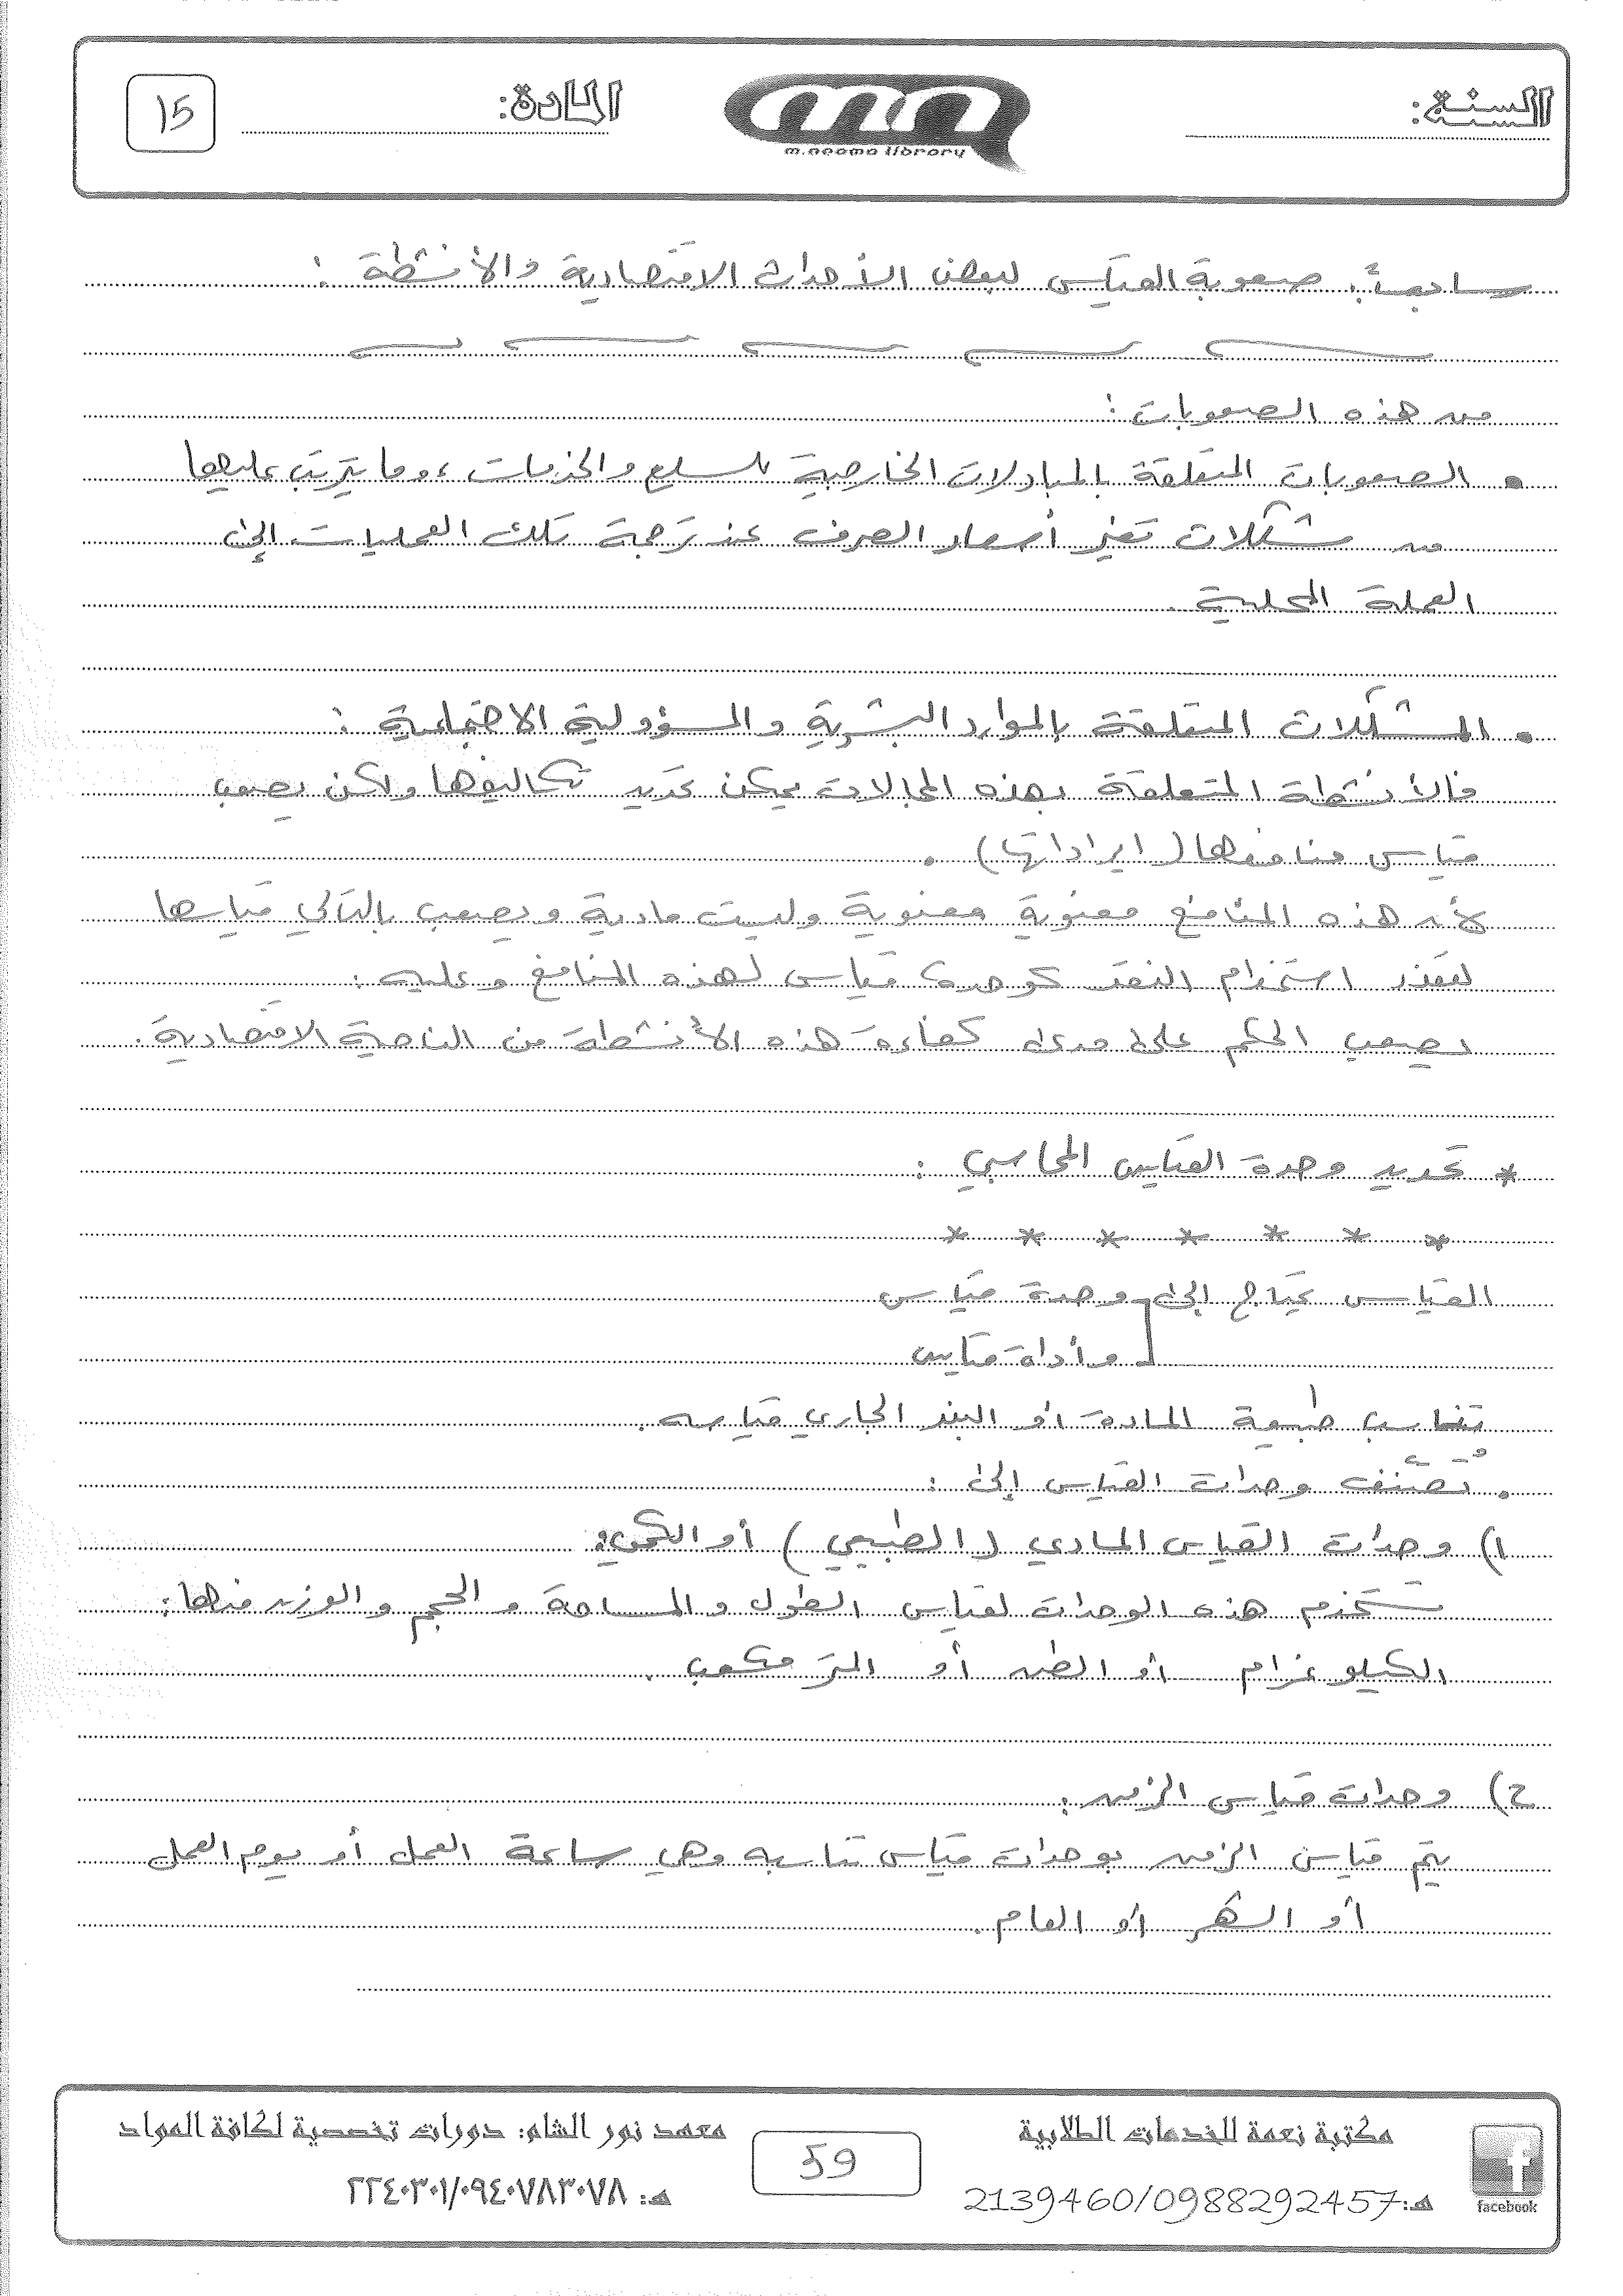 السنة:
m.neama library
المادة:
15
سابعاً: صعوبة القياس لبعض الأحداث الاقتصادية والأنشطة :
من هذه الصعوبات :
• الصعوبات المتعلقة بالمبادلات الخارجية للسلع والخدمات ، وما يترتب عليها
من مشكلات تغير أسعار الصرف عند ترجمة تلك العمليات إلى
العملة المحلية .
• المشكلات المتعلقة بالموارد البشرية والمسؤولية الاجتماعية :
فالأنشطة المتعلقة بهذه المجالات يمكن تحديد تكاليفها ولكن يصعب
قياس منافعها ( ايراداتها ) .
لأن هذه المنافع معنوية معنوية وليست مادية ويصعب بالتالي قياسها
لتعذر استخدام النقد كوحدة قياس لهذه المنافع وعليه :
يصعب الحكم على مدى كفاءة هذه الأنشطة من الناحية الاقتصادية .
* تحديد وحدة القياس المحاسبي :
* * * * * * *
القياس يحتاج إلى وحدة قياس
وأداة قياس
تناسب طبيعة المادة أو البند الجاري قياسه .
• تُصَنَّف وحدات القياس إلى :
1) وحدات القياس المادي ( الطبيعي ) أو الكمي :
تستخدم هذه الوحدات لقياس الطول والمساحة والحجم والوزن منها :
الكيلو غرام أو الطن أو المتر مكعب .
2) وحدات قياس الزمن :
يتم قياس الزمن بوحدات قياس تناسبه وهي ساعة العمل أو يوم العمل
أو الشهر أو العام .
مكتبة نعمة للخدمات الطلابية
هـ: 2139460/0988292457
facebook
59
معهد نور الشام: دورات تخصصية لكافة المواد
هـ: ٢٢٤٠٣٠١/٠٩٤٠٧٨٣٠٧٨